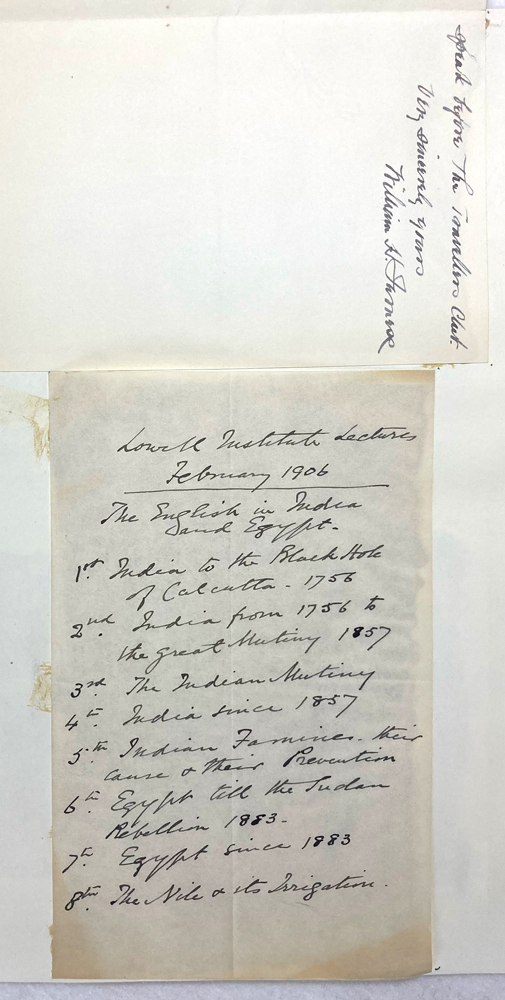 speak before The Travellers Club.
Very sincerely yours
William H.
Lowell Institute Lectures
February 1906
The English in India
and Egypt.
1st. India to the Black Hole
of Calcutta - 1756
2nd. India from 1756 to
the great Mutiny 1857
3rd. The Indian Mutiny
4th. India since 1857
5th. Indian Famines - their
cause & their Prevention
6th. Egypt till the Sudan
Rebellion 1883 -
7th. Egypt since 1883
8th. The Nile & its Irrigation.